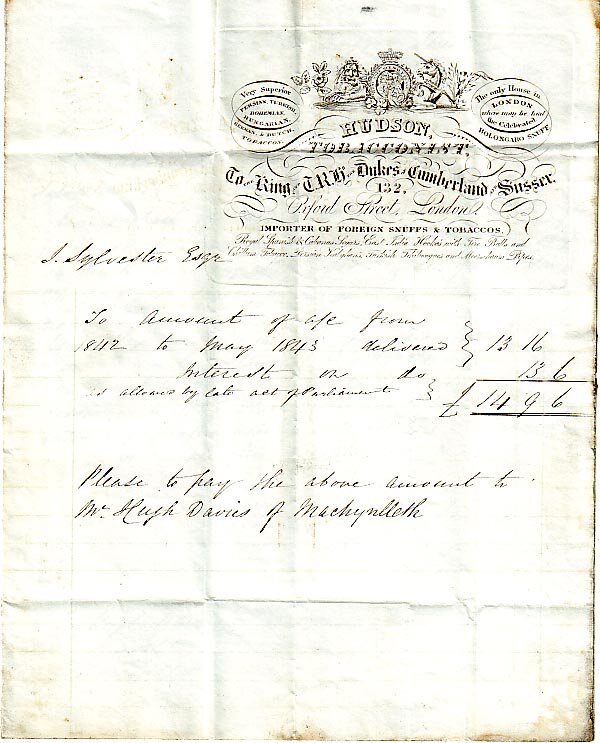 Very Superior
PERSIAN, TURKISH,
BOHEMIAN,
HUNGARIAN,
GERMAN, & DUTCH,
TOBACCOS.
The only House in
LONDON
where may be had
the Celebrated
BOLONGARO SNUFF
HUDSON,
TOBACCONIST,
To the King and T.R.H. the Dukes of Cumberland and Sussex.
132,
Oxford Street, London.
IMPORTER OF FOREIGN SNUFFS & TOBACCOS,
Royal Spanish & Cabanas Segars, East India Hookas, with Fire Balls and
Chillum Tobacco, Persian Kalyans, Turkish and Meerschaum Pipes.
J. Sylvester Esqr
To Amount of a/c from
1842 to May 1843 delivered } 13 16
Interest on do 13 6
as allowed by late act of Parliament } £ 14 9 6
Please to pay the above amount to
Mr. Hugh Davies of Machynlleth